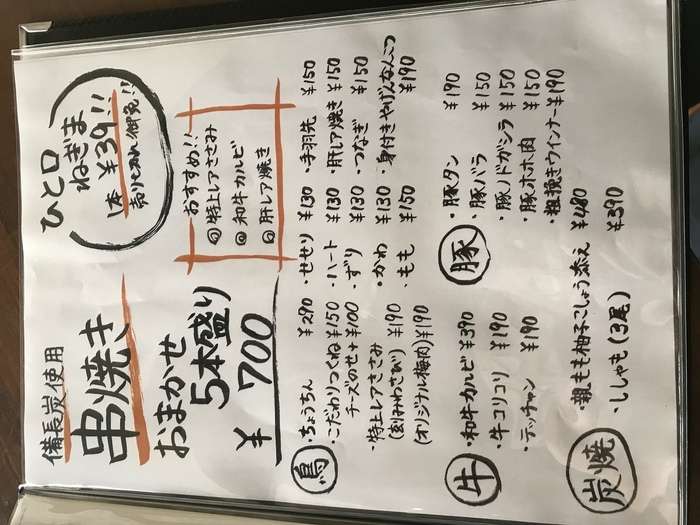 備長炭使用
串焼き
おまかせ
5本盛り
¥700
ひと口
ねぎま
1本 ¥39!!
売りきれ御免!!
おすすめ!!
特上レアささみ
和牛カルビ
肝レア焼き
鳥
・ちょうちん ¥290
・こだわりつくね ¥150
チーズのせ+¥100
・特上レアささみ
(刻みわさび) ¥190
(オリジナル梅肉) ¥190
・せせり ¥130
・ハート ¥130
・ずり ¥130
・かわ ¥130
・もも ¥150
・手羽先 ¥150
・肝レア焼き ¥150
・つなぎ ¥150
・身付きやげんなんこつ
¥190
牛
・和牛カルビ ¥390
・牛コリコリ ¥190
・テッチャン ¥190
豚
・豚タン ¥190
・豚バラ ¥150
・豚ノドガシラ ¥150
・豚ホホ肉 ¥150
・粗挽きウインナー ¥190
炭焼
・親もも柚子こしょう添え ¥480
・ししゃも(3尾) ¥390